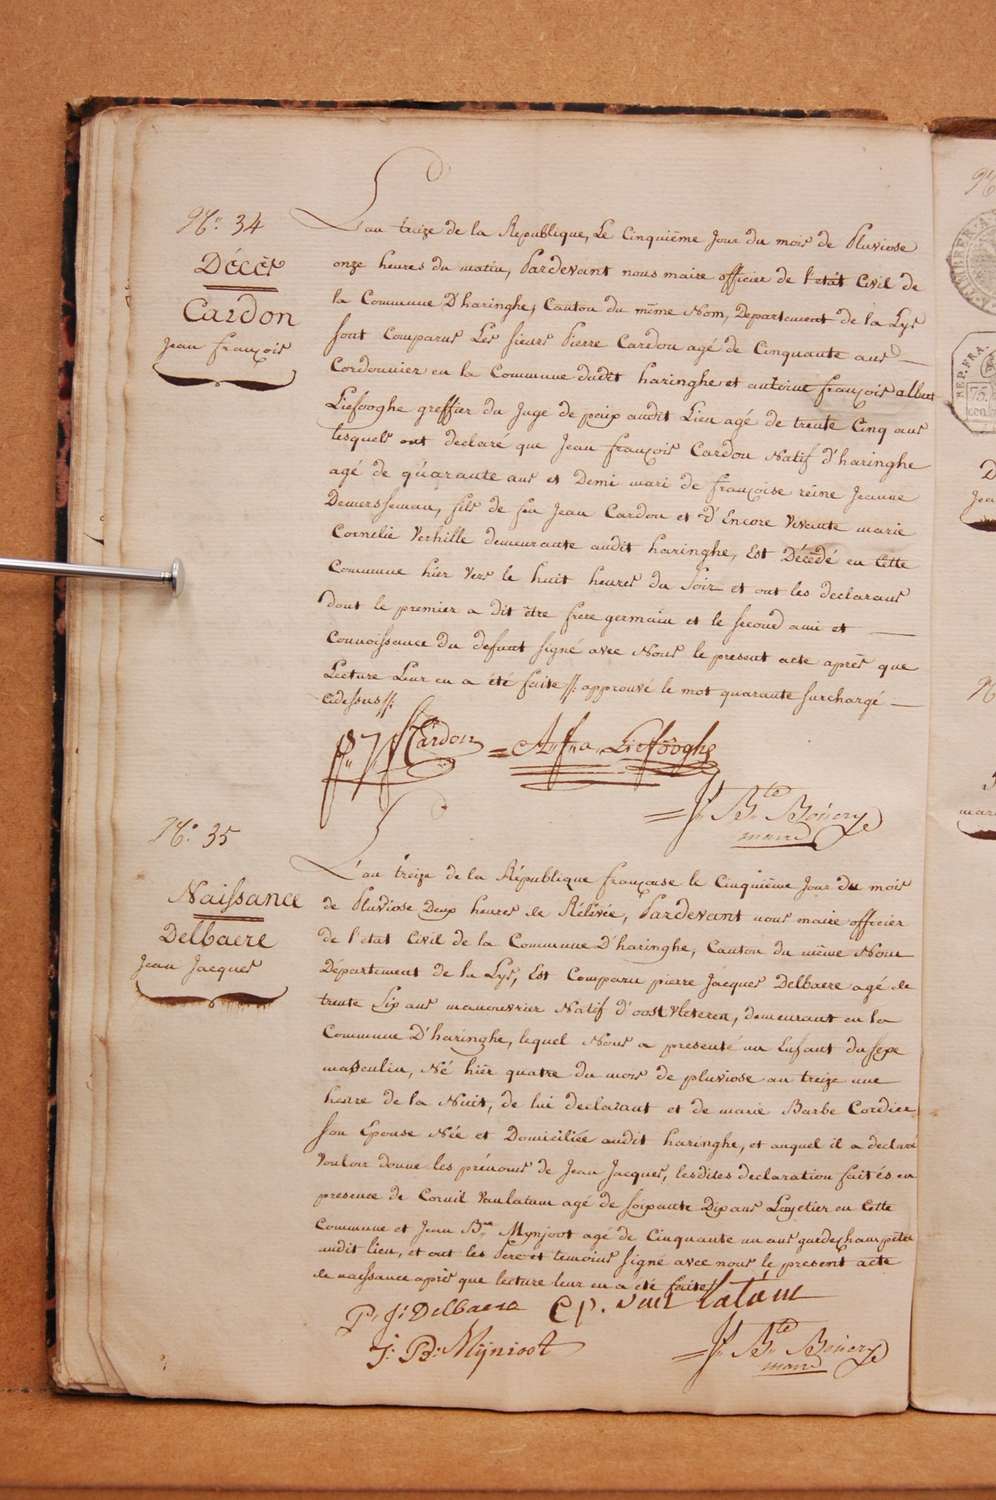 No. 34
Décès
Cardon
Jean françois
L'an treize de la Republique, Le Cinquiême Jour du mois de Pluviose
onze heures du matin, Pardevant nous maire officier de l'etat Civil de
la Commune D'haringhe, Canton du même Nom, Departement de la Lys
sont comparus Les sieurs Pierre Cardon agé de Cinquante ans —
Cordonnier en la Commune dudit haringhe et antoine françois albert
Liefooghe greffier du Juge de paix audit Lieu agé de trente Cinq ans
lesquels ont declaré que Jean françois Cardon Natif d'haringhe
agé de quarante ans et Demi mari de françoise reine Jeanne
Demersseman, fils de feu Jean Cardon et d'Encore Vivante marie
Cornelie Verhille demeurante audit haringhe, Est Décédé en Cette
Commune hier Vers le huit heures du Soir et ont les declarans
Dont le premier a dit être frere germain et le second ami et —
Connoissance du defunt signé avec Nous le present acte après que
Lecture Leur en a été faite //: approuvé le mot quarante surchargé —
cidessus //:
Cardon = An. fra. Liefooghe
= J. Bte Bonery
maire
No. 35
Naissance
Delbaere
Jean Jacques
L'an treize de la République françoise le Cinquième Jour du mois
de Pluviose Deux heures de Rélévée, Pardevant nous maire officier
de l'etat Civil de la Commune D'haringhe, Canton du même Nom
Département de la Lys, Est Comparu pierre Jacques Delbaere agé de
trente Six ans manouvrier Natif d'oost Vleteren, demeurant en la
Commune D'haringhe, lequel Nous a presenté un Enfant du sexe
masculin, Né hier quatre du mois de pluviose an treize une
heure de la Nuit, de lui declarant et de marie Barbe Cordier
son Epouse Née et Domiciliée audit haringhe, et auquel il a declaré
Vouloir donner les prénoms de Jean Jacques, lesdites declaration faites en
presence de Cornil Vanlatum agé de soixante Dix ans Layetier en Cette
Commune et Jean Bte Mynjoot agé de Cinquante un ans gardechampêtre
audit lieu, et ont les Pere et temoins signé avec nous le present acte
de naissance après que lecture leur en a été faite
P. J. Delbaere C P. van latum
J: B: Mijnioot
= J. Bte Bonery
maire